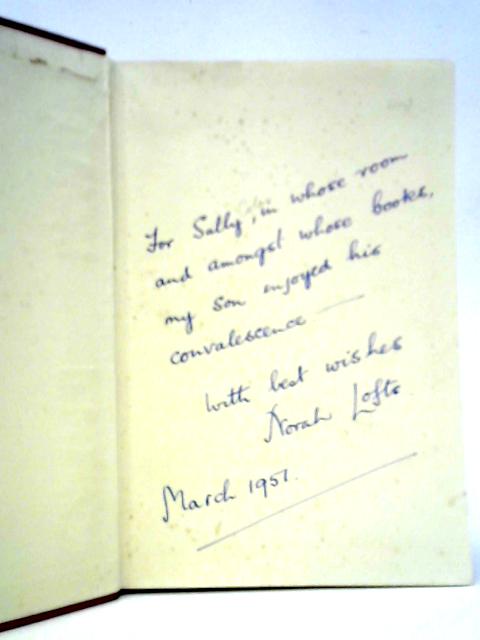 For Sally, in whose room
and amongst whose books,
my son enjoyed his
convalescence —
With best wishes
Norah Lofts
March 1951.